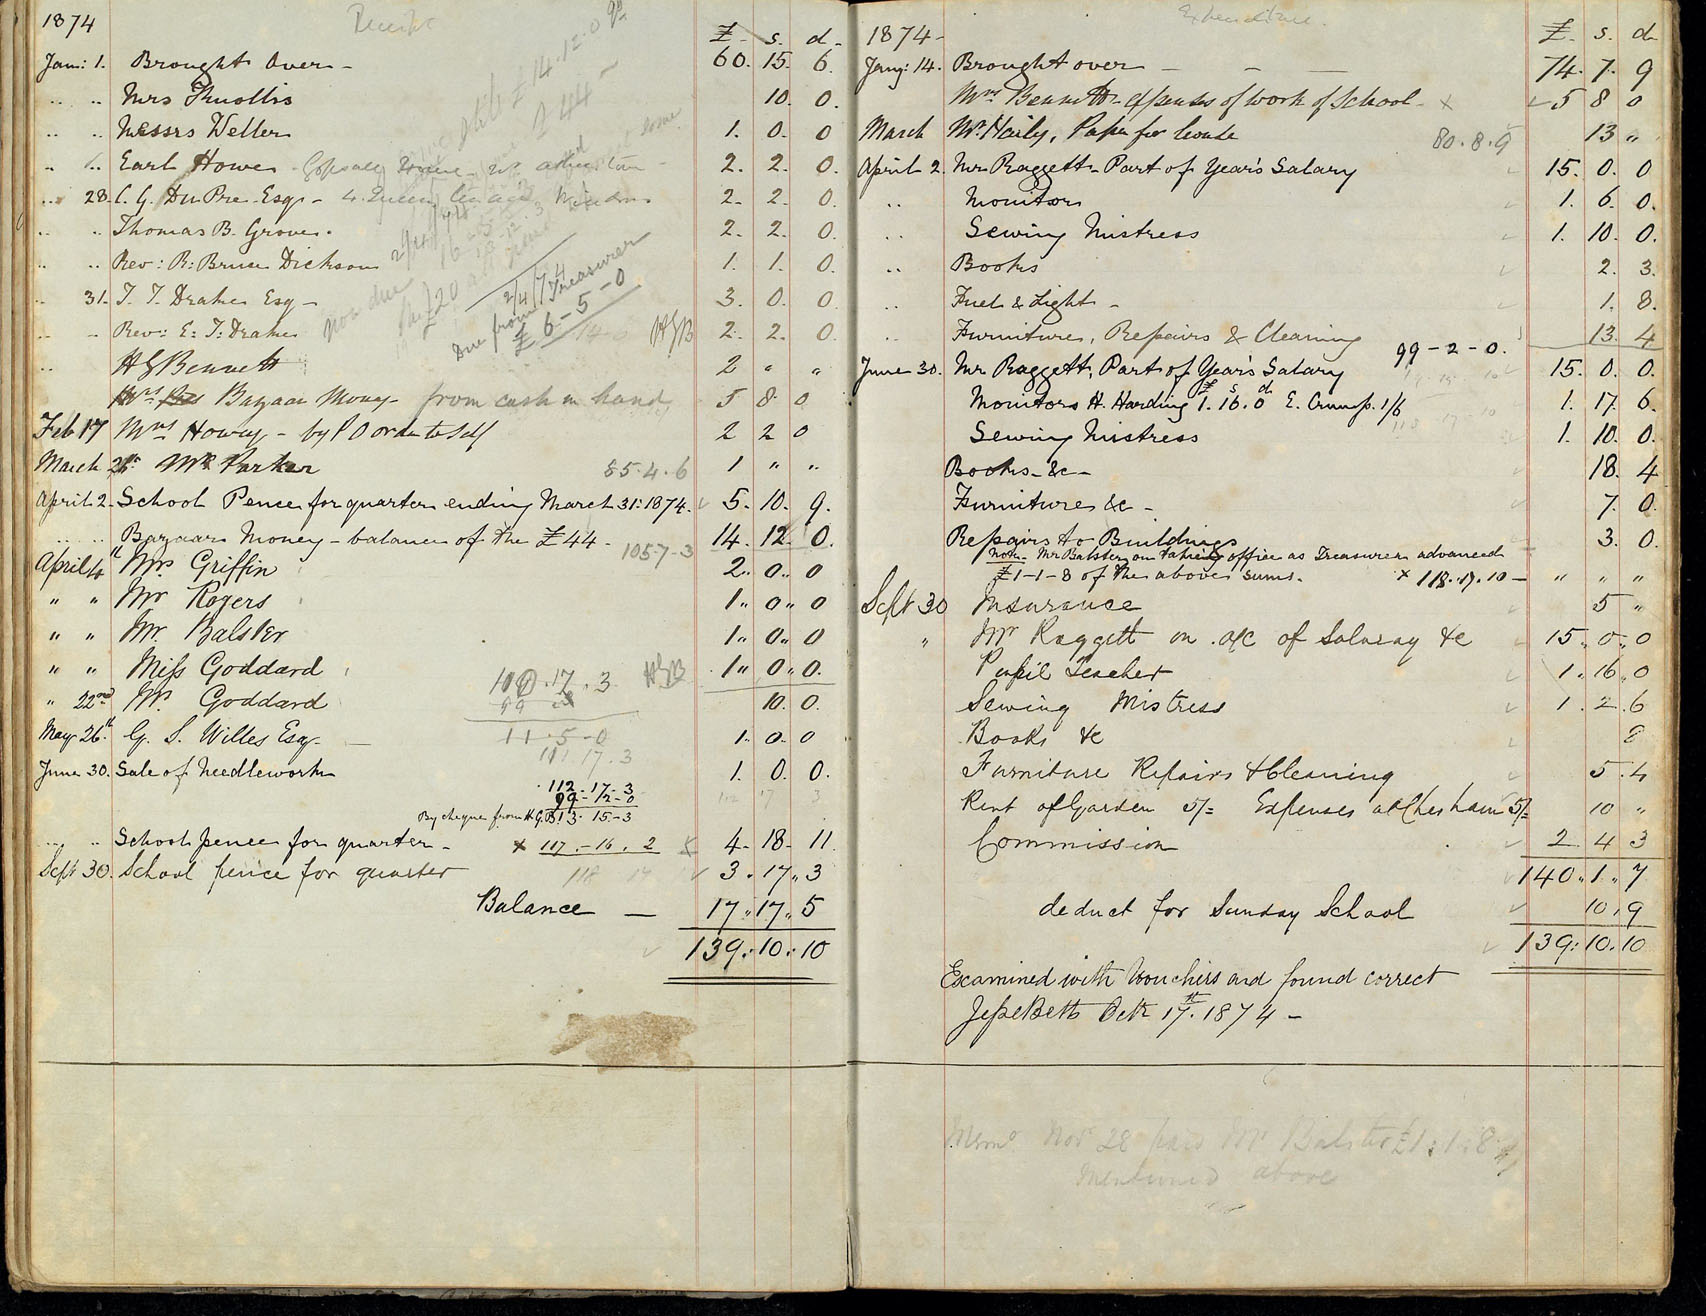 1874 Receipts £. s. d.
Jan: 1. Brought Over - 60. 15. 6.
" " Mrs Knollis 10. 0.
" " Messrs Weller 1. 0. 0
" " Earl Howe - Gopsall 2. 2. 0.
" 28 C. G. Du Pre Esqr - 2. 2. 0.
" " Thomas B. Groves. 2. 2. 0.
" " Rev: R: Bruce Dickson 1. 1. 0.
" 31. T. T. Drake Esq - 3. 0. 0
" " Rev: E: T: Drake HGB 2. 2. 0.
" H G Bennett 2 " "
Bazaar Money - from cash in hand 5 8 0
Feb 17 Mrs Howay - by P O order to self 2 2 0
March Mr Parker 85.4.6 1 " "
April 2. School Pence for quarter ending March 31: 1874. 5. 10. 9.
" " Bazaar Money - balance of the £44 - 105-7-3 14. 12. 0.
April 4th Mrs Griffin 2. 0. 0
" " Mr Rogers 1 " 0 " 0
" " Mr. Balster 1 " 0 " 0
" " Miss Goddard HGB 1 " 0 " 0.
" 22nd Mr. Goddard 10. 0.
May 26th G. S. Willes Esq. - 1. 0. 0
11-5-0
111 17.3
June 30. Sale of Needlework 1. 0. 0.
112-17-3
99-12-0
By cheque from H.G.B. 13-15-3
" " School pence for quarter - x 117.-16.2 4- 18- 11.
Sept 30. School pence for quarter 3. 17 " 3
Balance - 17 " 17 " 5
139. 10. 10
£14.12.0
£44
2/4/74
Due from Treasurer
£6-5-0
1874- Expenditure. £. s. d
Jany: 14. Brought over - - - 74. 7. 9
Mrs Bennett expenses of work of School - x 5 8 0
March Mr Haily, Paper for 80.8.9 13 "
April 2. Mr Raggett - Part of Year's Salary 15. 0. 0
" Monitors 1. 6. 0.
" Sewing Mistress 1. 10. 0.
" Books 2. 3.
" Fuel & Light - 1. 8.
" Furniture, Repairs & Cleaning 13. 4
99-2-0.
June 30. Mr Raggett, Part of Year's Salary 15. 0. 0.
£ s d
Monitors H. Harding 1. 16. 0 E. Crump. 1/6 1. 17. 6.
Sewing Mistress 1. 10. 0.
Books - &c - 18. 4
Furniture &c - 7. 0.
Repairs to Buildings 3. 0.
Note - Mr Balster on taking office as Treasurer advanced
£1-1-8 of the above sums. x 118.17.10 - " " "
Sept 30 Insurance 5 "
" Mr Raggett on a/c of Salary &c 15. 0. 0
Pupil Teacher 1. 16. 0
Sewing Mistress 1. 2. 6
Books &c 8
Furniture Repairs & Cleaning 5. 4
Rent of Garden 5/= Expenses at Chesham 5/= 10 "
Commission 2. 4 3
140 " 1 " 7
deduct for Sunday School 10. 9
139: 10. 10
Examined with Vouchers and found correct
Jesse Betts Oct 17th. 1874 -
Memo Nov 28 paid Mr Balster £1.1.8
mentioned above